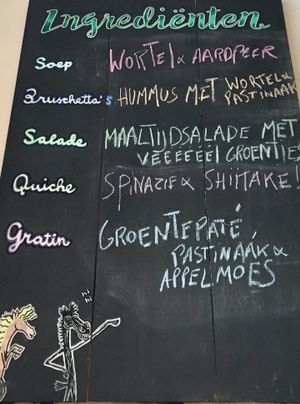 Ingrediënten
Soep WORTEL & AARDPEER
Bruschetta's HUMMUS MET WORTEL &
PASTINAAK
Salade MAALTIJDSALADE MET
VEEEEEEL GROENTJES
Quiche SPINAZIE & SHIITAKE!
Gratin GROENTEPATÉ,
PASTINAAK &
APPELMOES